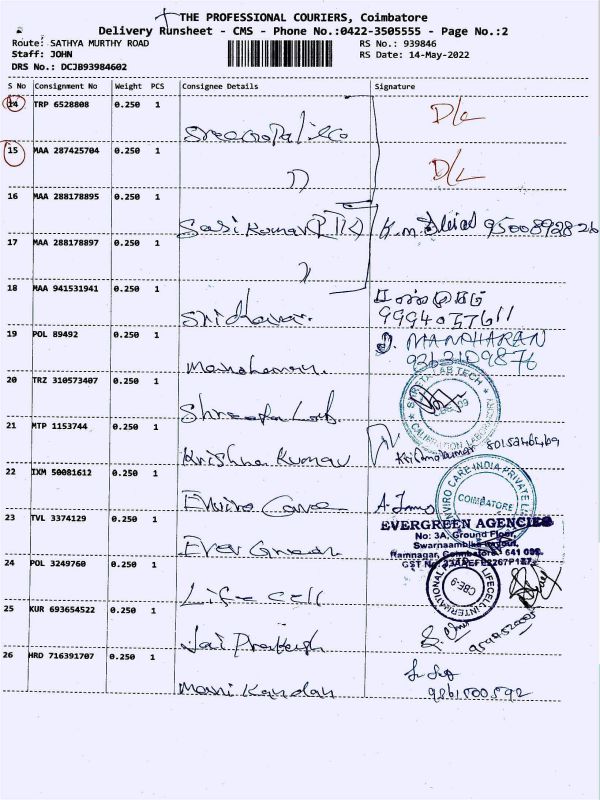 THE PROFESSIONAL COURIERS, Coimbatore
Delivery Runsheet - CMS - Phone No.:0422-3505555 - Page No.:2
Route: SATHYA MURTHY ROAD
RS No.: 939846
Staff: JOHN
RS Date: 14-May-2022
DRS No.: DCJB93984602
S No Consignment No Weight PCS Consignee Details Signature
14 TRP 6528808 0.250 1
D/L
15 MAA 287425704 0.250 1
D/L
16 MAA 288178895 0.250 1
Sasi Kumar 9500892826
17 MAA 288178897 0.250 1
18 MAA 941531941 0.250 1
Sridharan.
19 POL 89492 0.250 1
D. MANOHARAN
Manoharan. 9363109876
20 TRZ 310573407 0.250 1
SHRIFA LAB TECH
CBE-09
CALIBRATION LABORATORY
Shreefa Lab
21 MTP 1153744 0.250 1
Krishna Kumar
22 IXM 50081612 0.250 1
ENVIRO CARE INDIA PRIVATE LTD
COIMBATORE
Enviro Care
23 TVL 3374129 0.250 1
EVERGREEN AGENCIES
No: 3A, Ground Floor,
Swarnaambika Layout,
Ramnagar, Coimbatore - 641 009.
GST No.
Ever Green
24 POL 3249760 0.250 1
LIFECELL INTERNATIONAL
CBE-9
Life cell
25 KUR 693654522 0.250 1
Jai Prakash
26 HRD 716391707 0.250 1
Mani Kandan 9861500592